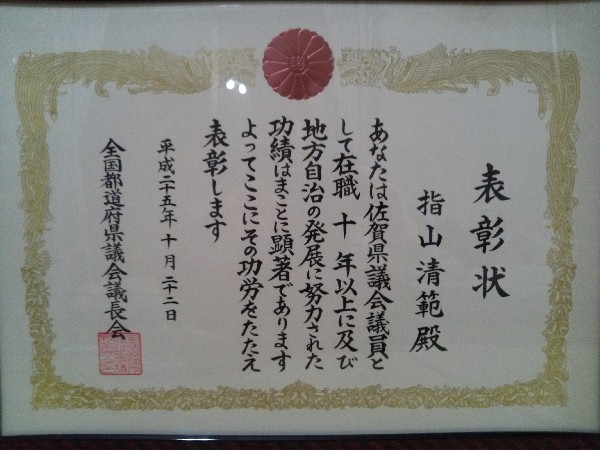 表彰状
指山清範殿
あなたは佐賀県議会議員と
して在職十年以上に及び
地方自治の発展に努力された
功績はまことに顕著であります
よってここにその功労をたたえ
表彰します
平成二十五年十月二十二日
全国都道府県議会議長会